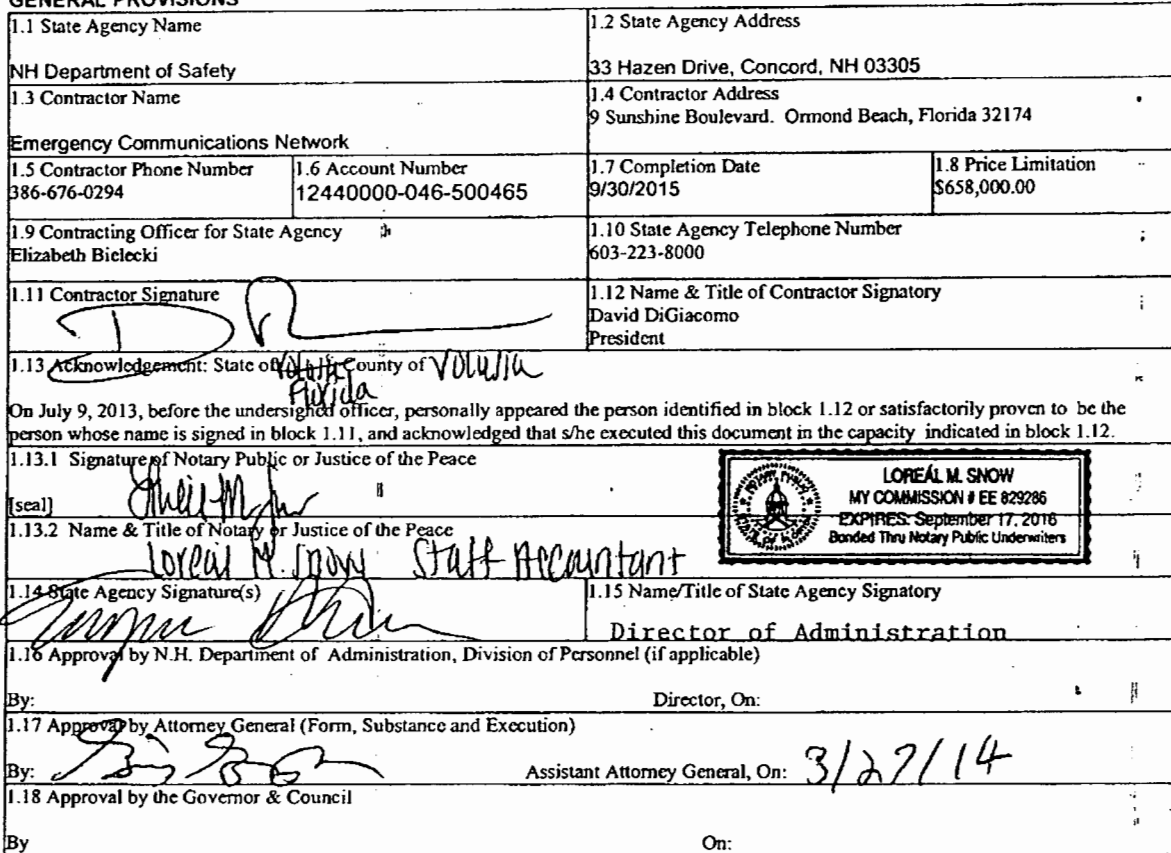 GENERAL PROVISIONS
1.1 State Agency Name
1.2 State Agency Address
NH Department of Safety
33 Hazen Drive, Concord, NH 03305
1.3 Contractor Name
1.4 Contractor Address
9 Sunshine Boulevard. Ormond Beach, Florida 32174
Emergency Communications Network
1.5 Contractor Phone Number
386-676-0294
1.6 Account Number
12440000-046-500465
1.7 Completion Date
9/30/2015
1.8 Price Limitation
$658,000.00
1.9 Contracting Officer for State Agency
Elizabeth Bielecki
1.10 State Agency Telephone Number
603-223-8000
1.11 Contractor Signature
1.12 Name & Title of Contractor Signatory
David DiGiacomo
President
1.13 Acknowledgement: State of County of Volusia
Florida
On July 9, 2013, before the undersigned officer, personally appeared the person identified in block 1.12 or satisfactorily proven to be the
person whose name is signed in block 1.11, and acknowledged that s/he executed this document in the capacity indicated in block 1.12.
1.13.1 Signature of Notary Public or Justice of the Peace
[seal]
LOREÁL M. SNOW
MY COMMISSION # EE 829286
EXPIRES: September 17, 2016
Bonded Thru Notary Public Underwriters
1.13.2 Name & Title of Notary or Justice of the Peace
Loreal M. Snow Staff Accountant
1.14 State Agency Signature(s)
1.15 Name/Title of State Agency Signatory
Director of Administration
1.16 Approval by N.H. Department of Administration, Division of Personnel (if applicable)
By: Director, On:
1.17 Approval by Attorney General (Form, Substance and Execution)
By: Assistant Attorney General, On: 3/27/14
1.18 Approval by the Governor & Council
By On: